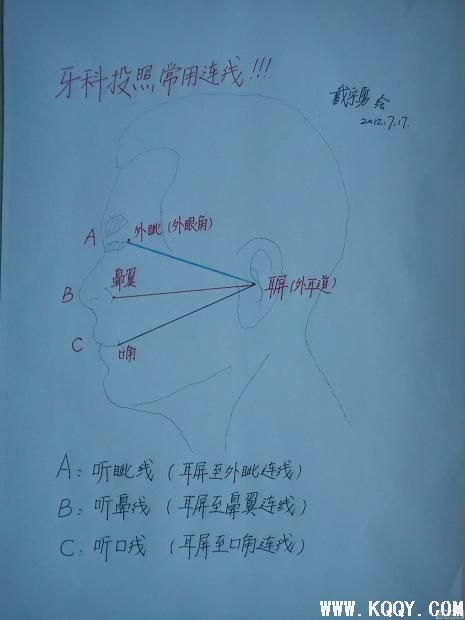 牙科投照常用连线!!!
戴宗勇 绘
2012.7.17.
A 外眦(外眼角)
鼻翼
B 耳屏(外耳道)
C 口角
A: 听眦线 (耳屏至外眦连线)
B: 听鼻线 (耳屏至鼻翼连线)
C: 听口线 (耳屏至口角连线)
WWW.KQQY.COM